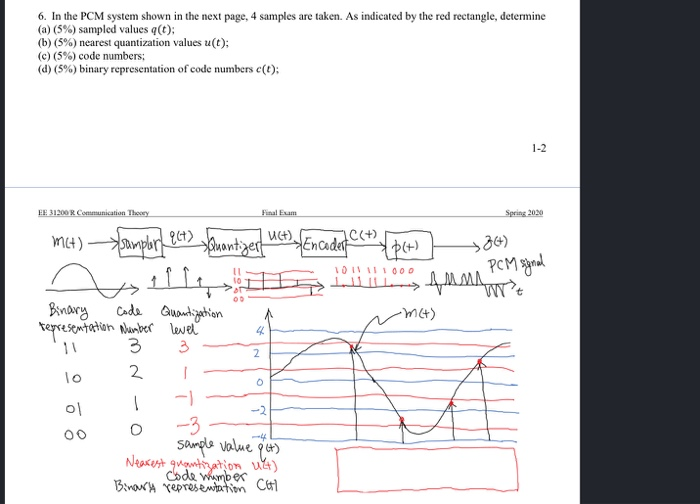 6. In the PCM system shown in the next page, 4 samples are taken. As indicated by the red rectangle, determine
(a) (5%) sampled values q(t);
(b) (5%) nearest quantization values u(t);
(c) (5%) code numbers;
(d) (5%) binary representation of code numbers c(t);
1-2
EE 31200/R Communication Theory Final Exam Spring 2020
m(t) Sampler q(t) Quantizer u(t) Encoder C(t) p(t) z(t)
PCM signal
11
10
01
00
1 0 1 1 1 1 1 0 0 0
t
Binary representation
Code Number
Quantization level
m(t)
11 3 3
10 2 1
01 1 -1
00 0 -3
4
2
0
-2
-4
Sample value q(t)
Nearest quantization u(t)
Code number
Binary representation C(t)